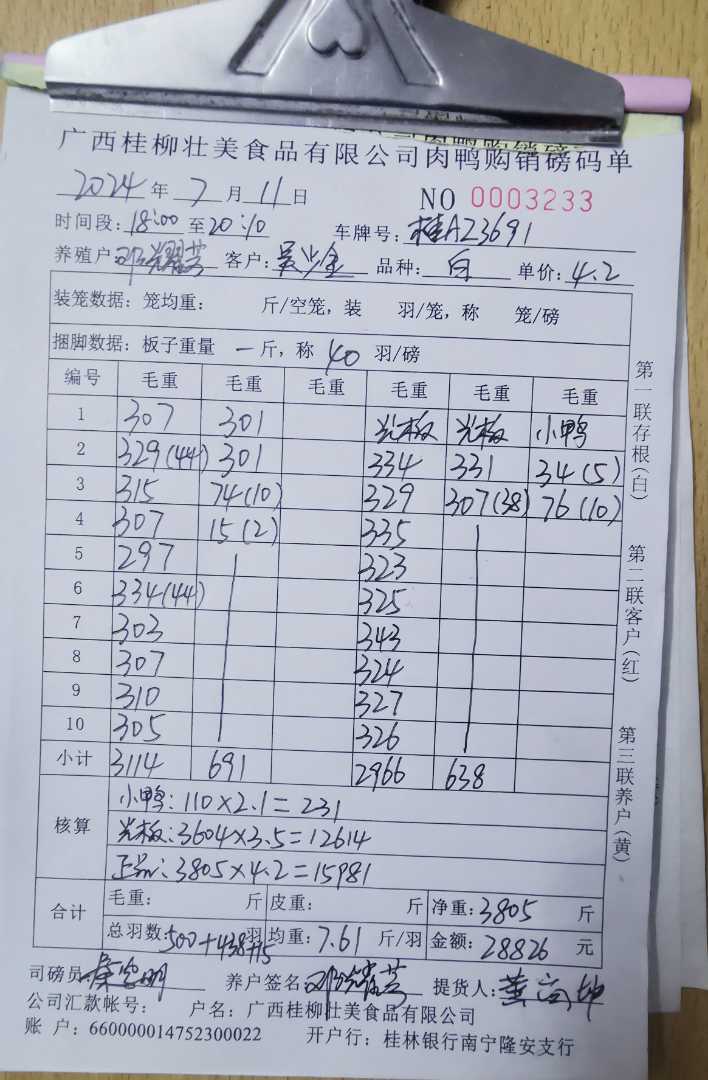 广西桂柳壮美食品有限公司肉鸭购销磅码单
2024年7月11日 NO 0003233
时间段:18:00至20:10 车牌号:桂AZ3691
养殖户:邓耀芬 客户:吴少金 品种:白 单价:4.2
装笼数据:笼均重: 斤/空笼,装 羽/笼,称 笼/磅
捆脚数据:板子重量 一斤,称 40 羽/磅
编号 毛重 毛重 毛重 毛重 毛重 毛重
1 307 301 光板 光板 小鸭
2 329(44) 301 334 331 34(5)
3 315 74(10) 329 307(38) 76(10)
4 307 15(2) 335
5 297 323
6 334(44) 325
7 303 343
8 307 324
9 310 327
10 305 326
小计 3114 691 2966 638
核算 小鸭:110×2.1=231
光板:3604×3.5=12614
正品:3805×4.2=15981
合计 毛重: 斤 皮重: 斤 净重:3805 斤
总羽数:500+438+15羽 均重:7.61 斤/羽 金额:28826 元
司磅员: 养户签名: 提货人:
公司汇款帐号: 户名:广西桂柳壮美食品有限公司
账 户:660000014752300022 开户行:桂林银行南宁隆安支行
第一联存根(白)
第二联客户(红)
第三联养户(黄)